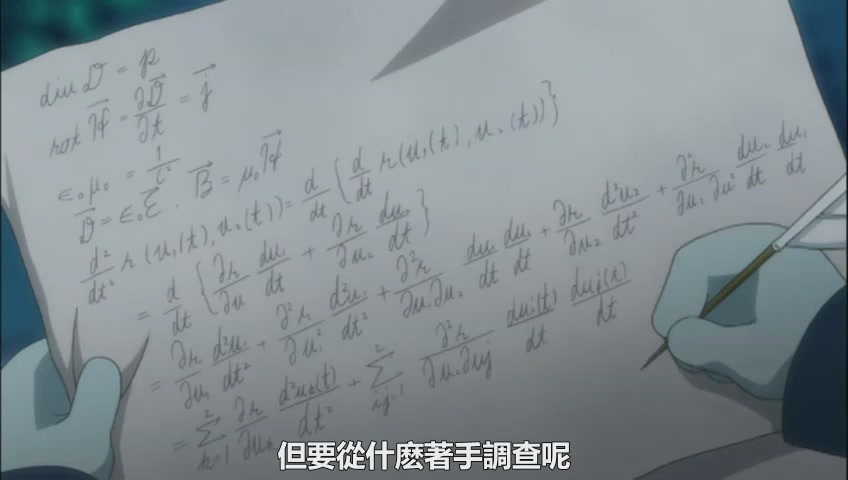 div D = ρ
rot H⃗ = ∂D⃗/∂t = j⃗
ε₀μ₀ = 1/c²
D⃗ = ε₀E⃗ . B⃗ = μ₀H⃗
d²/dt² r(u₁(t), u₂(t)) = d/dt { d/dt r(u₁(t), u₂(t)) }
= d/dt { ∂r/∂u du₁/dt + ∂r/∂u₂ du₂/dt }
= ∂r/∂u₁ d²u₁/dt² + ∂²r/∂u₁² d²u₂/dt² + ∂²r/∂u₁∂u₂ du₁/dt du₂/dt + ∂r/∂u₂ d²u₂/dt² + ∂²r/∂u₂∂u² du₂/dt du₁/dt
= Σ²ₖ₌₁ ∂r/∂uₖ d²uₖ(t)/dt² + Σ²ᵢⱼ₌₁ ∂²r/∂uᵢ∂uj duᵢ(t)/dt duⱼ(t)/dt
但要從什麼著手調查呢